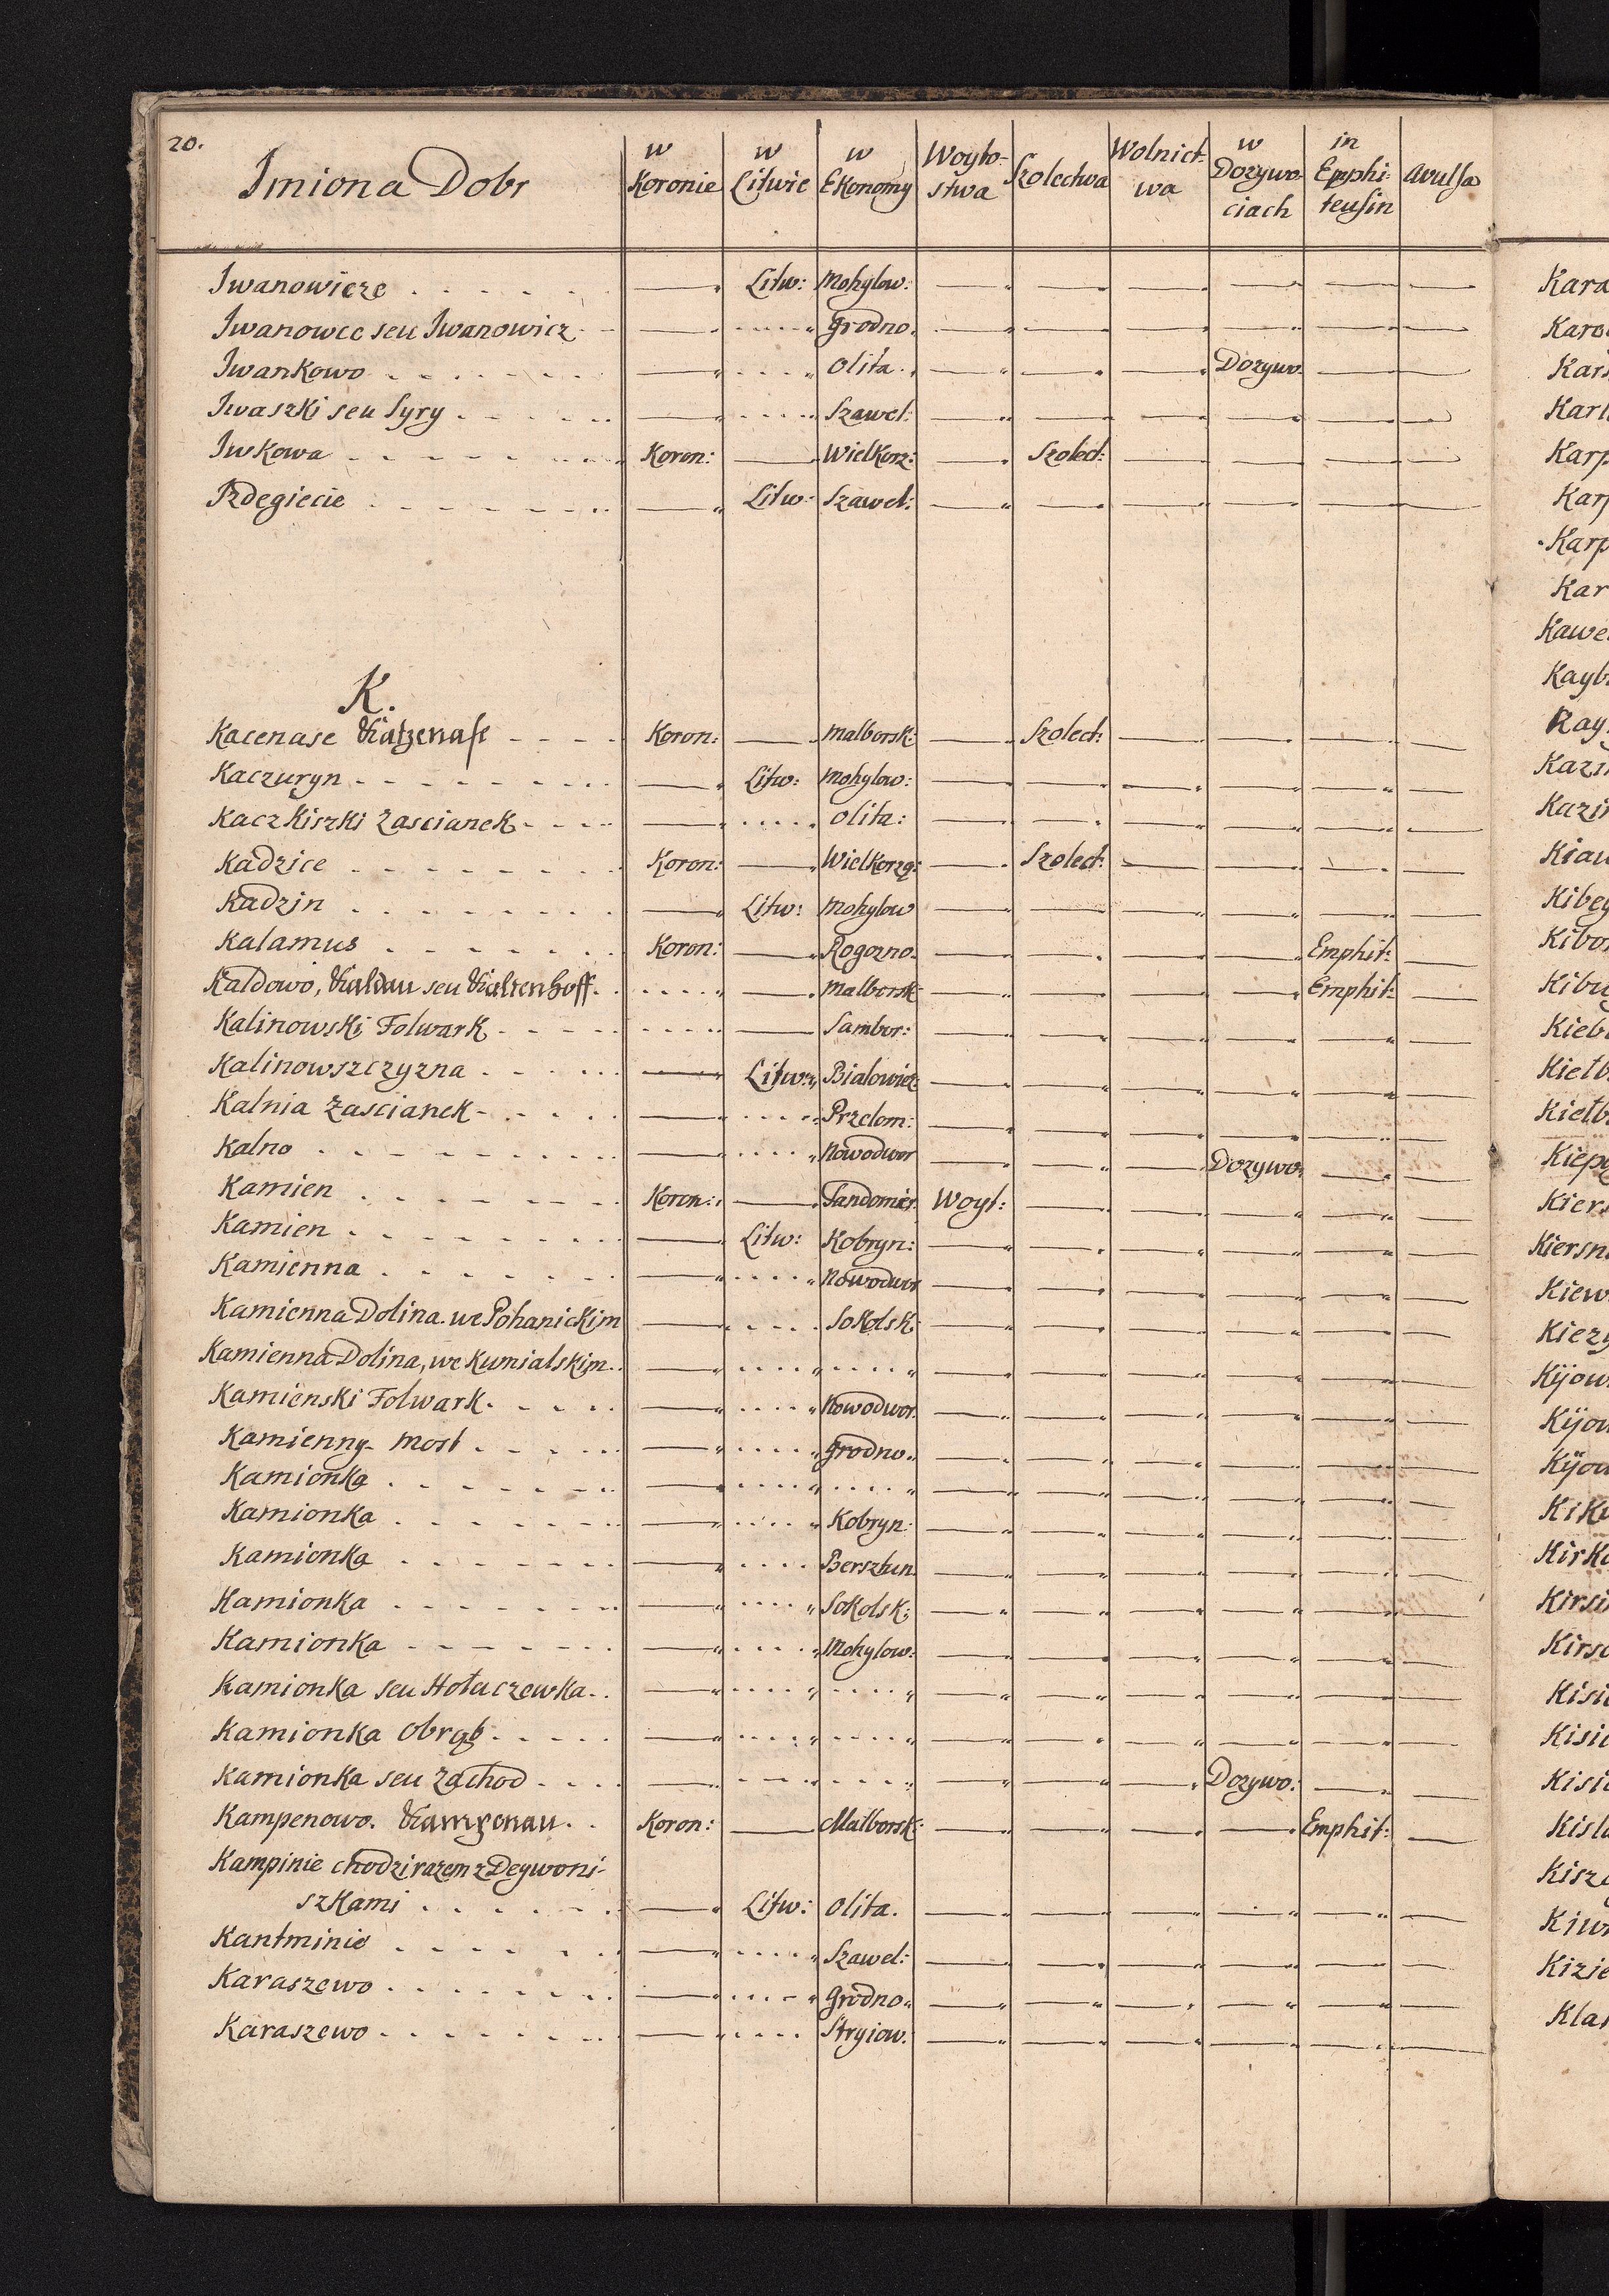 20.
Imiona Dobr | w Koronie | w Litwie | w Ekonomy | Woyto-stwa | Szolectwa | Wolnict-wa | w Dozywo-ciach | in Emphi-teusin | avulsa
Iwanowicze . . . . . . . | — | Litw: | Mohylow: | — | — | — | — | — | —
Iwanowce seu Iwanowicz | — | . . . . „ | Grodno. | — | — | — | — | — | —
Iwankowo . . . . . . . | — | . . . . „ | Olita . | — | — | — | Dozywo. | — | —
Iwaszki seu Syry . . . . . | — | . . . . „ | Szawel: | — | — | — | — | — | —
Iwkowa . . . . . . . | Koron: | — | Wielkorz: | — | Szolect: | — | — | — | —
Izdegiecie . . . . . . . | — | Litw: | Szawel: | — | — | — | — | — | —
K.
Kacenase Katzenase . . . . | Koron: | — | Malborsk: | — | Szolect: | — | — | — | —
Kaczuryn . . . . . . . | — | Litw: | Mohylow: | — | — | — | — | — | —
Kaczkiszki Zascianek . . . . | — | . . . . „ | Olita: | — | — | — | — | — | —
Kadzice . . . . . . . | Koron: | — | Wielkorzą: | — | Szolect: | — | — | — | —
Kadzin . . . . . . . | — | Litw: | Mohylow | — | — | — | — | — | —
Kalamus . . . . . . . | Koron: | — | Rogozno. | — | — | — | — | Emphit: | —
Kaldowo, Kaldau seu Kaltenhoff. | . . . . „ | — | Malborsk | — | — | — | — | Emphit: | —
Kalinowski Folwark . . . . . | . . . . „ | — | Sambor: | — | — | — | — | — | —
Kalinowszczyzna . . . . . | — | Litw: | Bialowiez: | — | — | — | — | — | —
Kalnia Zascianek . . . . . | — | . . . . „ | Przelom: | — | — | — | — | — | —
Kalno . . . . . . . | — | . . . . „ | Nowodwor | — | — | — | Dozywo: | — | —
Kamien . . . . . . . | Koron: | — | Sandomier. | Woyt: | — | — | — | — | —
Kamien . . . . . . . | — | Litw: | Kobryn: | — | — | — | — | — | —
Kamienna . . . . . . . | — | . . . . „ | Nowodwor | — | — | — | — | — | —
Kamienna Dolina. we Pohanickim | — | . . . . | Sokolsk: | — | — | — | — | — | —
Kamienna Dolina, we Kumialskim. . | — | . . . . „ | . . . . „ | — | — | — | — | — | —
Kamienski Folwark . . . . . | — | . . . . „ | Nowodwor. | — | — | — | — | — | —
Kamienny - Most . . . . . | — | . . . . „ | Grodno. | — | — | — | — | — | —
Kamionka . . . . . . . | — | . . . . „ | . . . . „ | — | — | — | — | — | —
Kamionka . . . . . . . | — | . . . . „ | Kobryn: | — | — | — | — | — | —
Kamionka . . . . . . . | — | . . . . | Bersztun | — | — | — | — | — | —
Kamionka . . . . . . . | — | . . . . „ | Sokolsk: | — | — | — | — | — | —
Kamionka . . . . . . . | — | . . . . „ | Mohylow: | — | — | — | — | — | —
Kamionka seu Hołuczewka . . | — | . . . . „ | . . . . „ | — | — | — | — | — | —
Kamionka Obrąb . . . . . | — | . . . . „ | . . . . „ | — | — | — | — | — | —
Kamionka seu Zachod . . . . | — | . . . . | . . . . „ | — | — | — | Dozywo: | — | —
Kampenowo. Kampenau. . | Koron: | — | Malborsk: | — | — | — | — | Emphit: | —
Kampinie chodzi razem z Deywoni-
szkami . . . . . . | — | Litw: | Olita. | — | — | — | — | — | —
Kantminie . . . . . . | — | . . . . „ | Szawel: | — | — | — | — | — | —
Karaszewo . . . . . . . | — | . . . . „ | Grodno. | — | — | — | — | — | —
Karaszewo . . . . . . . | — | . . . . | Stryiow: | — | — | — | — | — | —